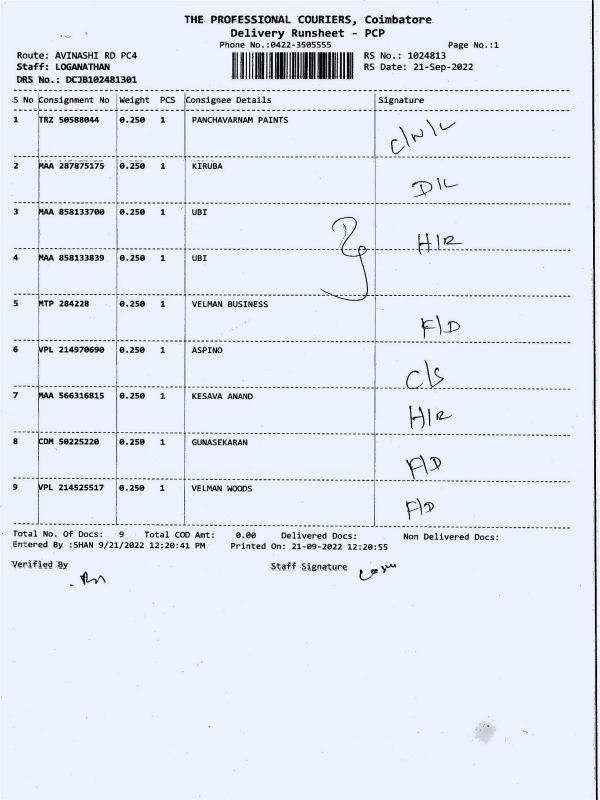 THE PROFESSIONAL COURIERS, Coimbatore
Delivery Runsheet - PCP
Phone No.:0422-3505555 Page No.:1
Route: AVINASHI RD PC4 RS No.: 1024813
Staff: LOGANATHAN RS Date: 21-Sep-2022
DRS No.: DCJB102481301
S No Consignment No Weight PCS Consignee Details Signature
1 TRZ 50588044 0.250 1 PANCHAVARNAM PAINTS C/N/L
2 MAA 287875175 0.250 1 KIRUBA D/L
3 MAA 858133700 0.250 1 UBI H/R
4 MAA 858133839 0.250 1 UBI
5 MTP 284228 0.250 1 VELMAN BUSINESS F/D
6 VPL 214970690 0.250 1 ASPINO C/S
7 MAA 566316815 0.250 1 KESAVA ANAND H/R
8 CDM 50225220 0.250 1 GUNASEKARAN F/D
9 VPL 214525517 0.250 1 VELMAN WOODS F/D
Total No. Of Docs: 9 Total COD Amt: 0.00 Delivered Docs: Non Delivered Docs:
Entered By :SHAN 9/21/2022 12:20:41 PM Printed On: 21-09-2022 12:20:55
Verified By Staff Signature